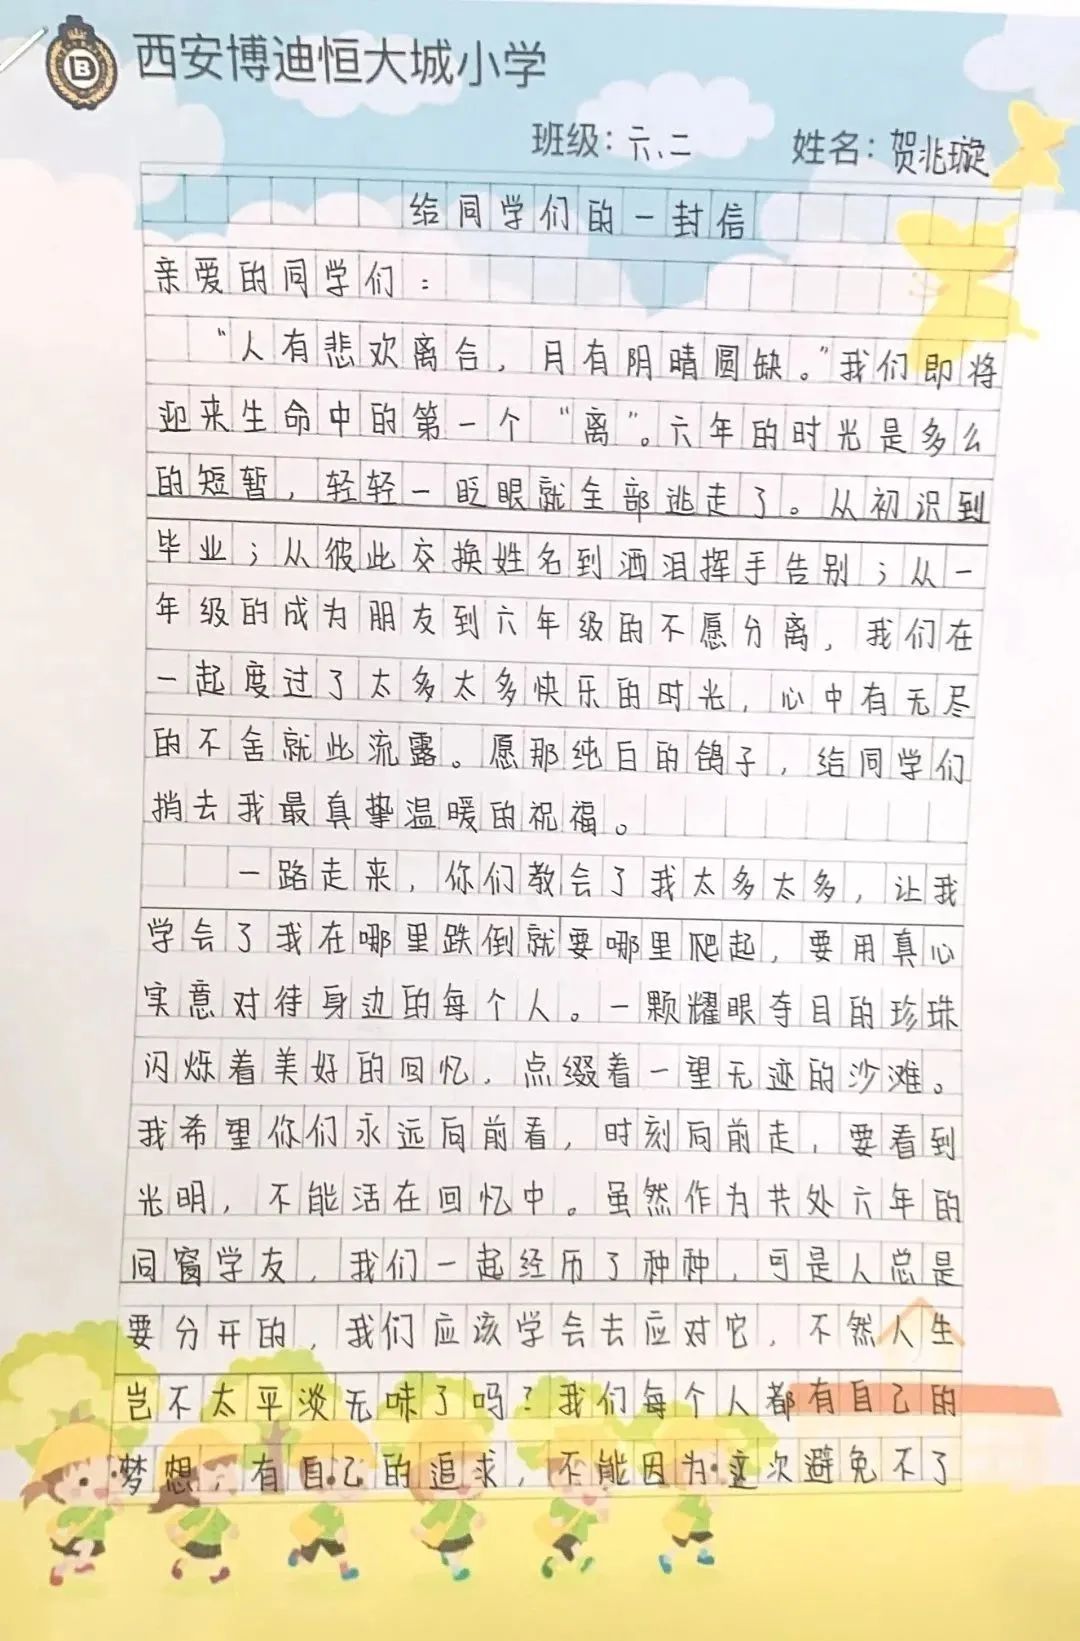 B
西安博迪恒大城小学
班级：六、二 姓名：贺兆璇
给同学们的一封信
亲爱的同学们：
“人有悲欢离合，月有阴晴圆缺。”我们即将
迎来生命中的第一个“离”。六年的时光是多么
的短暂，轻轻一眨眼就全部逃走了。从初识到
毕业；从彼此交换姓名到洒泪挥手告别；从一
年级的成为朋友到六年级的不愿分离，我们在
一起度过了太多太多快乐的时光，心中有无尽
的不舍就此流露。愿那纯白的鸽子，给同学们
捎去我最真挚温暖的祝福。
一路走来，你们教会了我太多太多，让我
学会了我在哪里跌倒就要哪里爬起，要用真心
实意对待身边的每个人。一颗耀眼夺目的珍珠
闪烁着美好的回忆，点缀着一望无迹的沙滩。
我希望你们永远向前看，时刻向前走，要看到
光明，不能活在回忆中。虽然作为共处六年的
同窗学友，我们一起经历了种种，可是人总是
要分开的，我们应该学会去应对它，不然人生
岂不太平淡无味了吗？我们每个人都有自己的
梦想，有自己的追求，不能因为这次避免不了